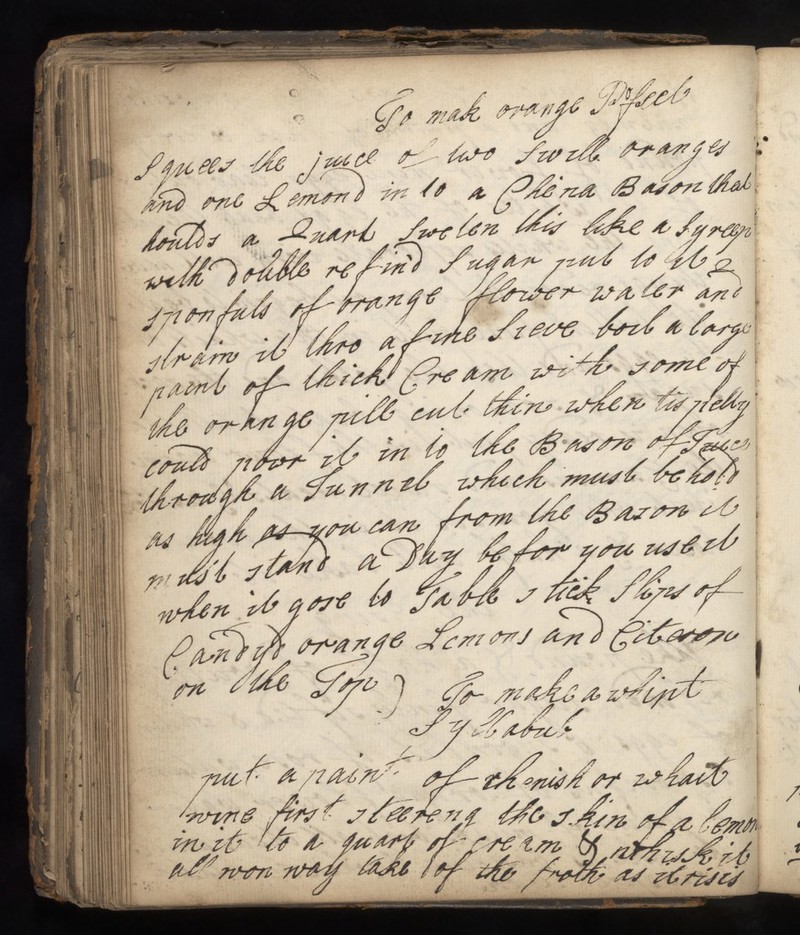 To mak orange Posset
Squees the juice of two Swill oranges
and one Lemond in to a China Bason that
houlds a Quart Sweten this like a Syreep
with double refind Sugar put to it 2
sponfuls of orange flower water and
strain it thro a fine Sieve boil a large
paint of thick Cream with some of
the orange pill cut thin when tis pretty
could powr it in to the Bason of Juice
through a Tunnil which must be hold
as high as you can from the Bason it
must stand a Day befor you use it
when it gose to Table stick Slips of
Candyd orange Lemons and Citeron
on the Top)
To make a whipt
Syllabub
put a paint of rhenish or whait
wine first steereng the skin of a lemon
in it to a quart of cream & whisk it
all won way take of the froth as it risis